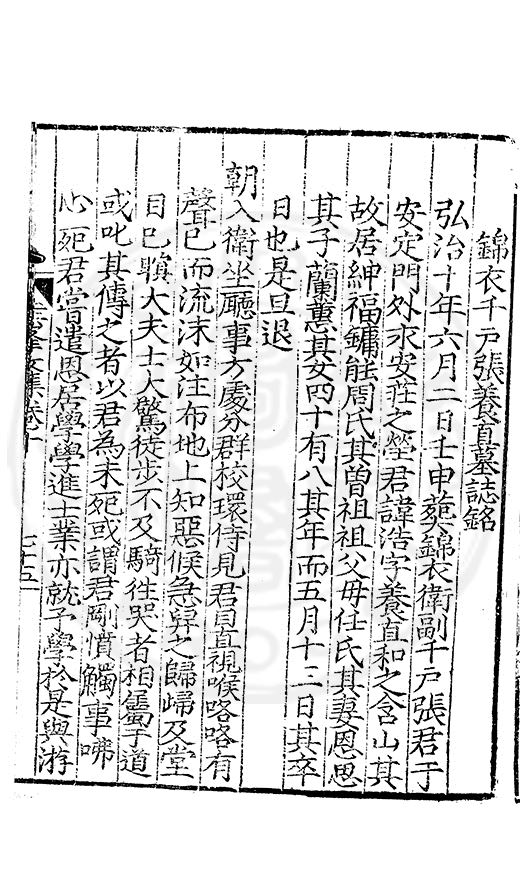 錦衣千戶張養直墓誌銘
弘治十年六月二日壬申葬錦衣衛副千戶張君于
安定門外永安莊之塋君諱浩字養直和之含山其
故居紳福鏞能周氏其曽祖祖父母任氏其妻恩思
其子蘭蕙其女四十有八其年而五月十三日其卒
日也是旦退
朝入衛坐廳事方處分群校環侍見君目直視喉咯咯有
聲已而流沫如注布地上知惡候急舁之歸歸及堂
目已瞑大夫士大驚徒步不及騎徃哭者相屬于道
或叱其傳之者以君為未死或謂君剛憤觸事咈
心死君嘗遣恩居學學進士業亦就予學於是與游
七十五